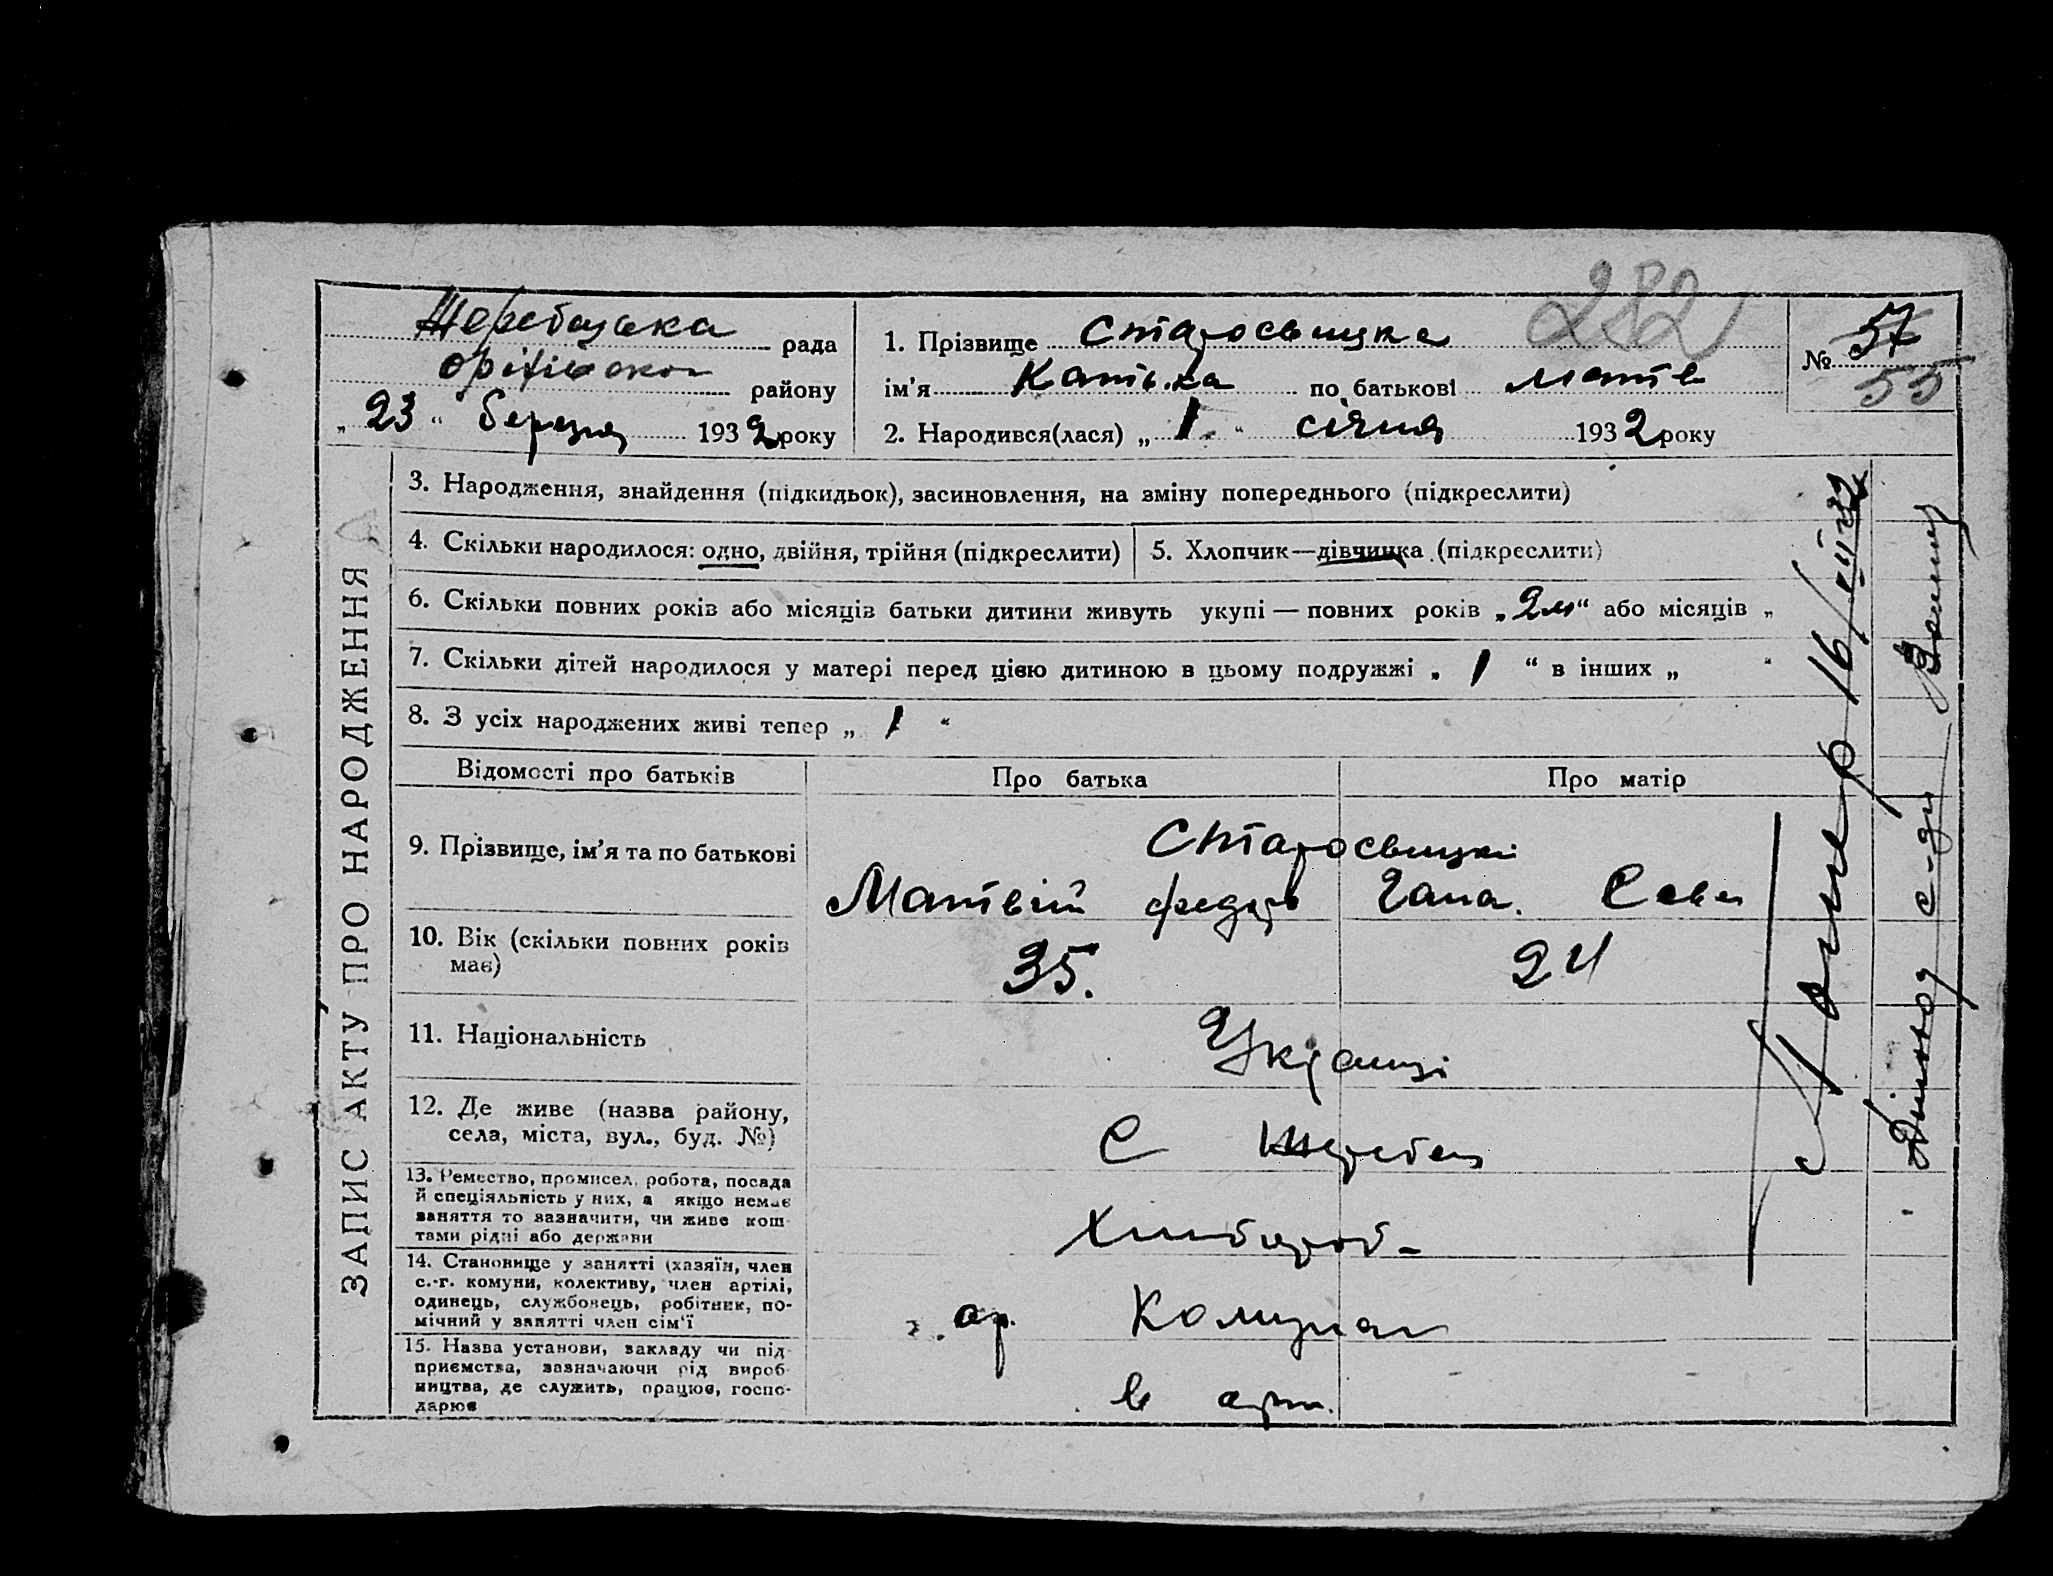 282
Жеребецька рада
Оріхівськог району
„ 23 “ березня 1932 року
1. Прізвище Старосвицка
ім’я Катька по батькові Матв
2. Народився(лася) „ 1 “ січня 1932 року
№ 57
55
ЗАПИС АКТУ ПРО НАРОДЖЕННЯ
3. Народження, знайдення (підкидьок), засиновлення, на зміну попереднього (підкреслити)
4. Скільки народилося: одно, двійня, трійня (підкреслити)
5. Хлопчик—дівчинка (підкреслити)
6. Скільки повних років або місяців батьки дитини живуть укупі — повних років „ 2 “ або місяців „
7. Скільки дітей народилося у матері перед цією дитиною в цьому подружжі „ 1 “ в інших „ “
8. З усіх народжених живі тепер „ 1 “
Відомості про батьків
Про батька
Про матір
9. Прізвище, ім’я та по батькові
Старосвицкі
Матвій Федор Гана. Сав
10. Вік (скільки повних років має)
35.
24
11. Національність
Українці
12. Де живе (назва району, села, міста, вул., буд. №)
С Жеребец
13. Ремество, промисел, робота, посада й спеціяльність у них, а якщо немає заняття то зазначити, чи живе коштами рідні або держави
Хлібороб-
14. Становище у занятті (хазяїн, член с.-г. комуни, колективу, член артілі, одинець, службовець, робітник, помічний у занятті член сім’ї
ар. Комунар
15. Назва установи, закладу чи підприємства, зазначаючи рід виробництва, де служить, працює, господарює
в арт.
Помер 16/VII 32